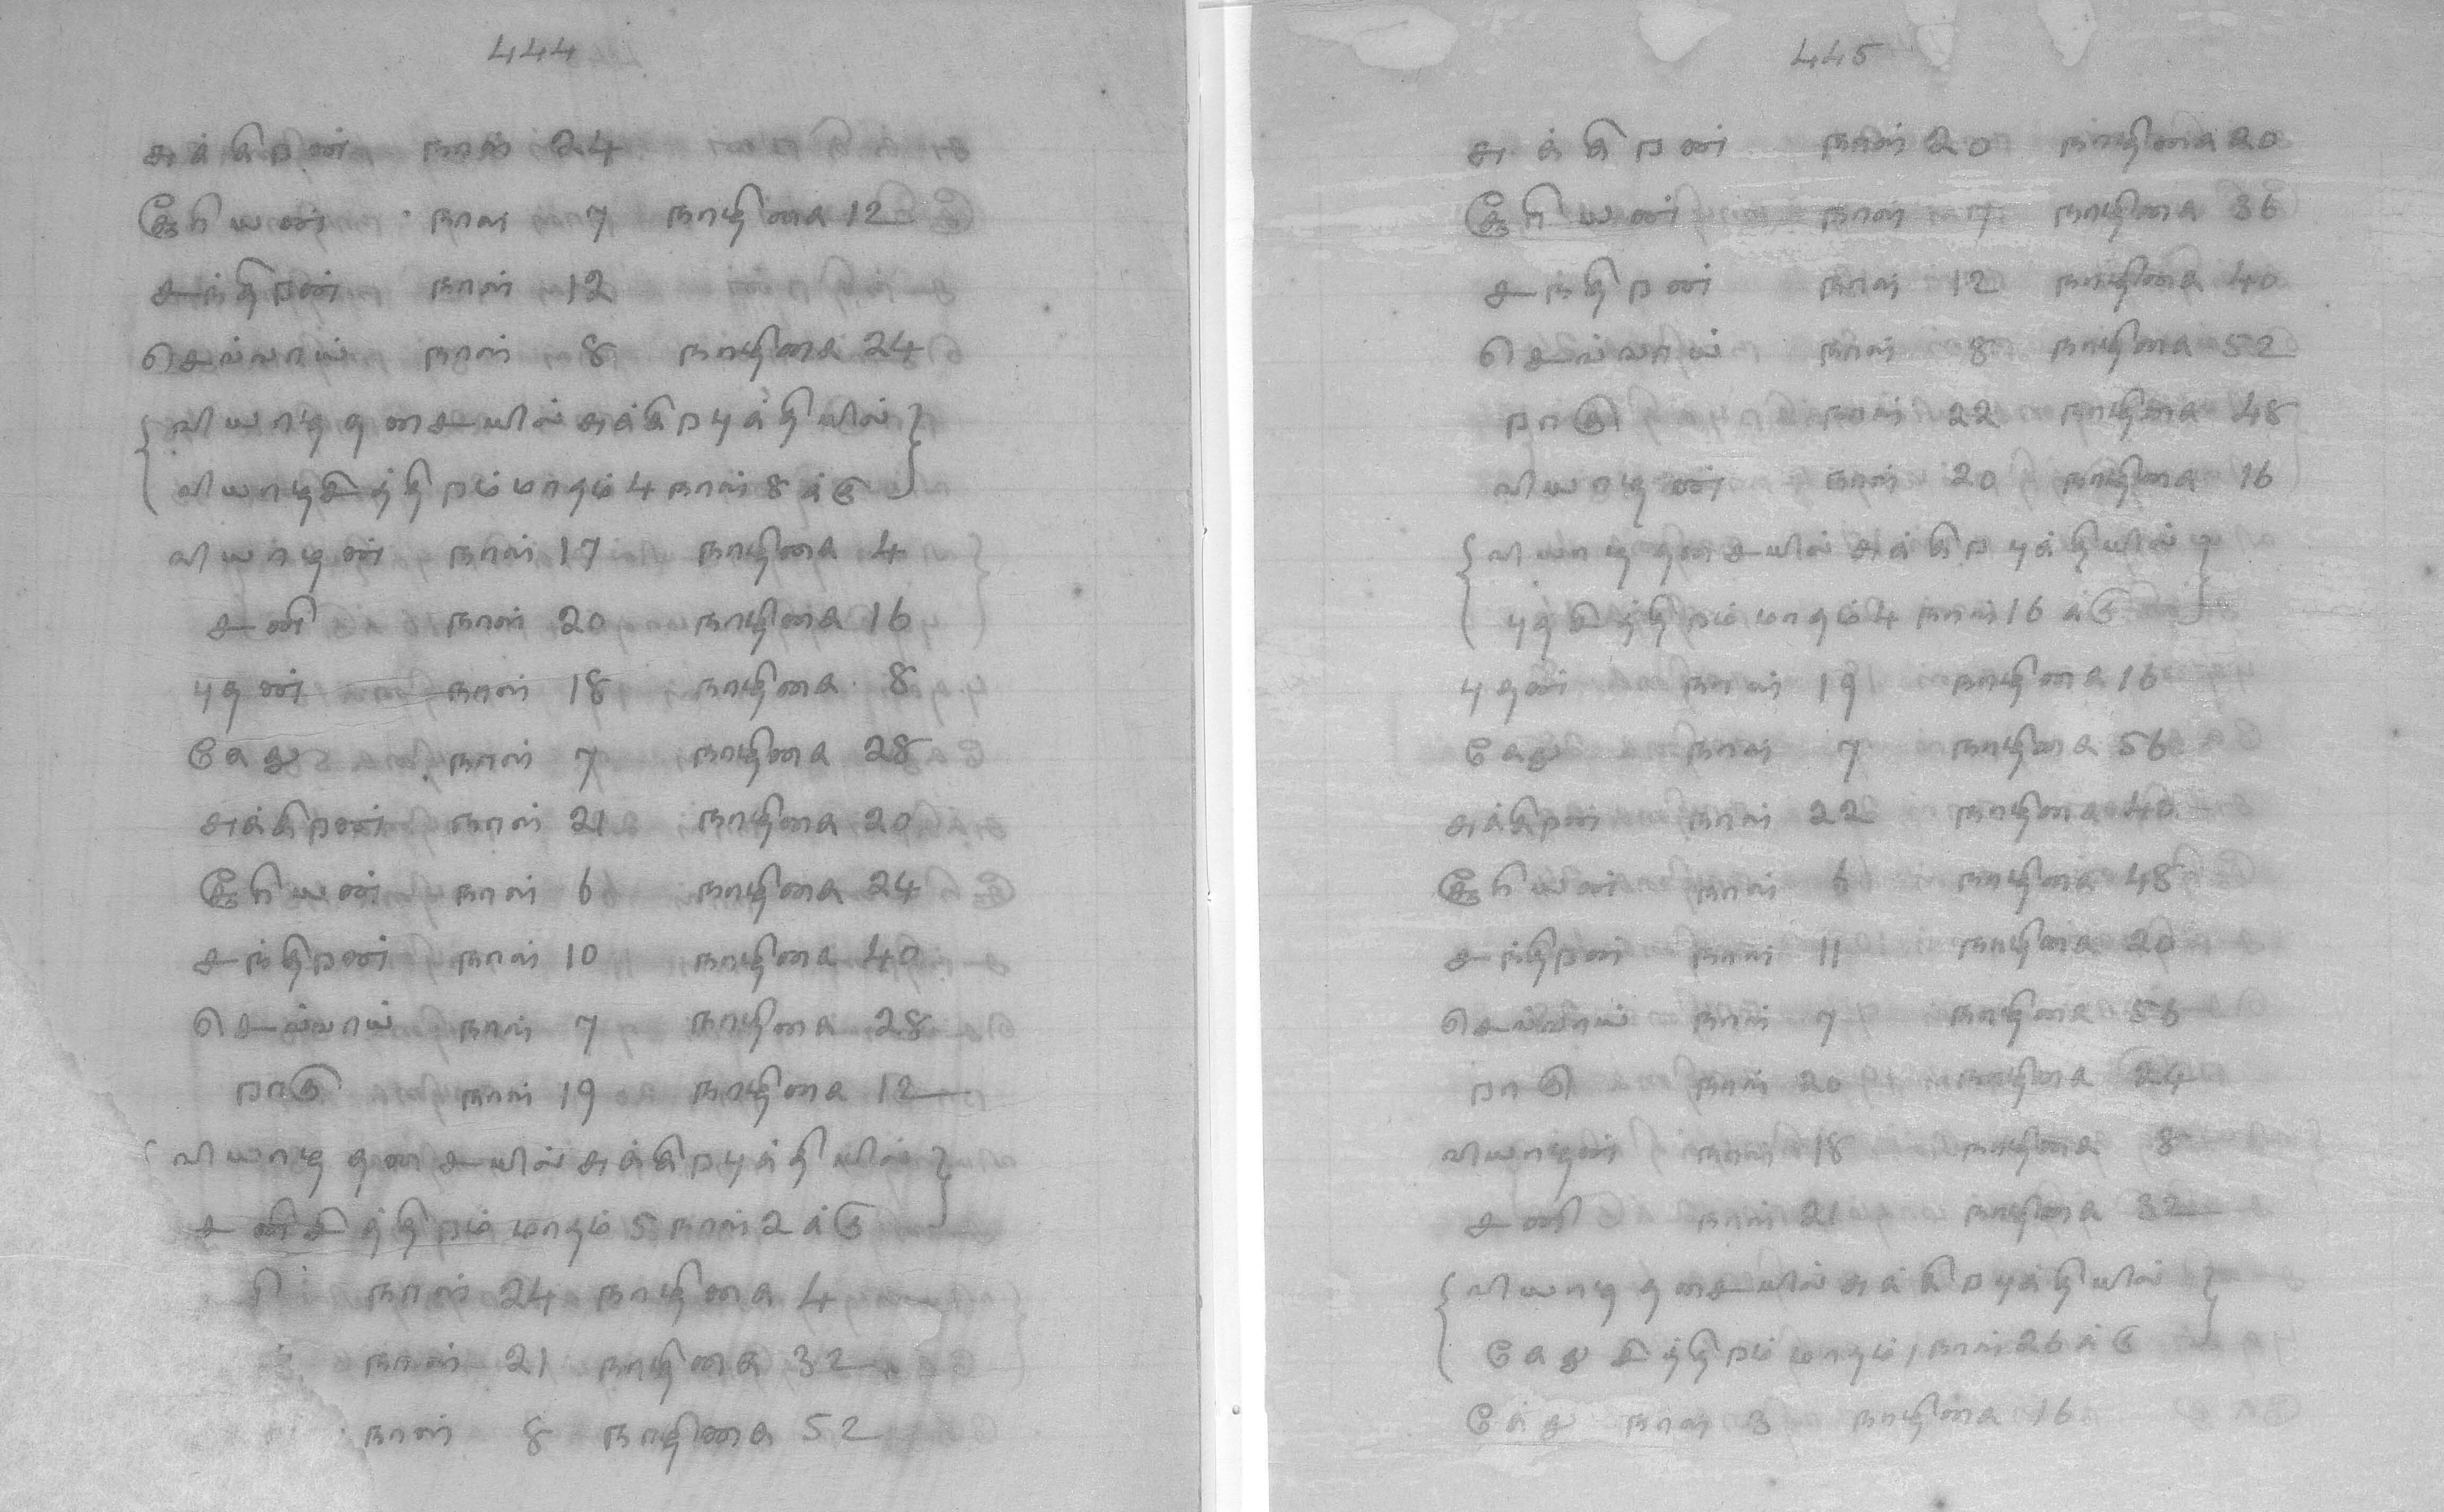 444
சுக்கிறன் நாள் 24
சூரியன் நாள் 7 நாழிகை 12
சந்திறன் நாள் 12
செவ்வாய் நாள் 8 நாழிகை 24
{வியாழதசையில் சுக்கிறபுக்தியில்}
{வியாழசித்திறம் மாதம் 4 நாள் 8 க்கு}
வியாழன் நாள் 17 நாழிகை 4
சனி நாள் 20 நாழிகை 16
புதன் நாள் 18 நாழிகை 8
கேது நாள் 7 நாழிகை 28
சுக்கிறன் நாள் 21 நாழிகை 20
சூரியன் நாள் 6 நாழிகை 24
சந்திறன் நாள் 10 நாழிகை 40
செவ்வாய் நாள் 7 நாழிகை 28
றாகு நாள் 19 நாழிகை 12
{வியாழ தசையில் சுக்கிறபுக்தியில்}
சனிசித்திறம் மாதம் 5 நாள் 2 க்கு
நாள் 24 நாழிகை 4
நாள் 21 நாழிகை 32
நாள் 8 நாழிகை 52
445
சுக்கிறன் நாள் 20 நாழிகை 20
சூரியன் நாள் 7 நாழிகை 36
சந்திறன் நாள் 12 நாழிகை 40
செவ்வாய் நாள் 8 நாழிகை 52
றாகு நாள் 22 நாழிகை 48
வியாழன் நாள் 20 நாழிகை 16
{வியாழ தசையில் சுக்கிறபுக்தியில்}
{புதசித்திறம் மாதம் 4 நாள் 16 க்கு}
புதன் நாள் 19 நாழிகை 16
கேது நாள் 7 நாழிகை 56
சுக்கிறன் நாள் 22 நாழிகை 40
சூரியன் நாள் 6 நாழிகை 48
சந்திறன் நாள் 11 நாழிகை 20
செவ்வாய் நாள் 7 நாழிகை 56
றாகு நாள் 20 நாழிகை 24
வியாழன் நாள் 18 நாழிகை 8
சனி நாள் 21 நாழிகை 32
{வியாழ தசையில் சுக்கிறபுக்தியில்}
{கேது சித்திறம் மாதம் 1 நாள் 26 க்கு}
நாள் 3 நாழிகை 16